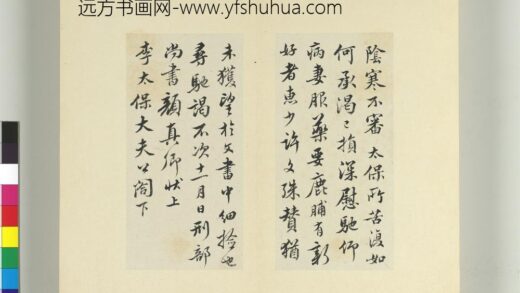 远方书画网-www.yfshuhua.com
陰寒不審太保所苦復如
何承渴已損深慰馳仰
病妻服藥要鹿脯有新
好者惠少許文殊贊猶
未獲望於文書中細撿也
尋馳謁不次十一月日刑部
尚書顏真卿狀上
李太保大夫公閤下